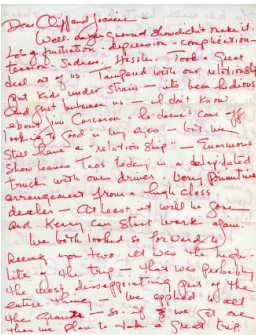 Dear Cliff and Joanne —
Well
Lots of frustration — depression — complication —
tension. Sadness. Hassle. Took a Great
deal out of us. Tampered with our relationship
Put Kids under Strain — its been tedious
And just between us — I don't know
about Jim Corcoran he doesn't come off
looking so good in my eyes — but we
Still have a "relationship" — Enormous
Show leaves Taos today in a delapidated
truck with one driver. Very Primitive
arrangement from a high class
dealer — At least it will be gone
and Kenny can Start work again.
We both looked so forward to
Seeing you two it was the high-
Lite of the trip — that was probably
the most disappointing part of the
entire thing — We applied to all
the Grants — So if we get one
then we Plan to take a great trip